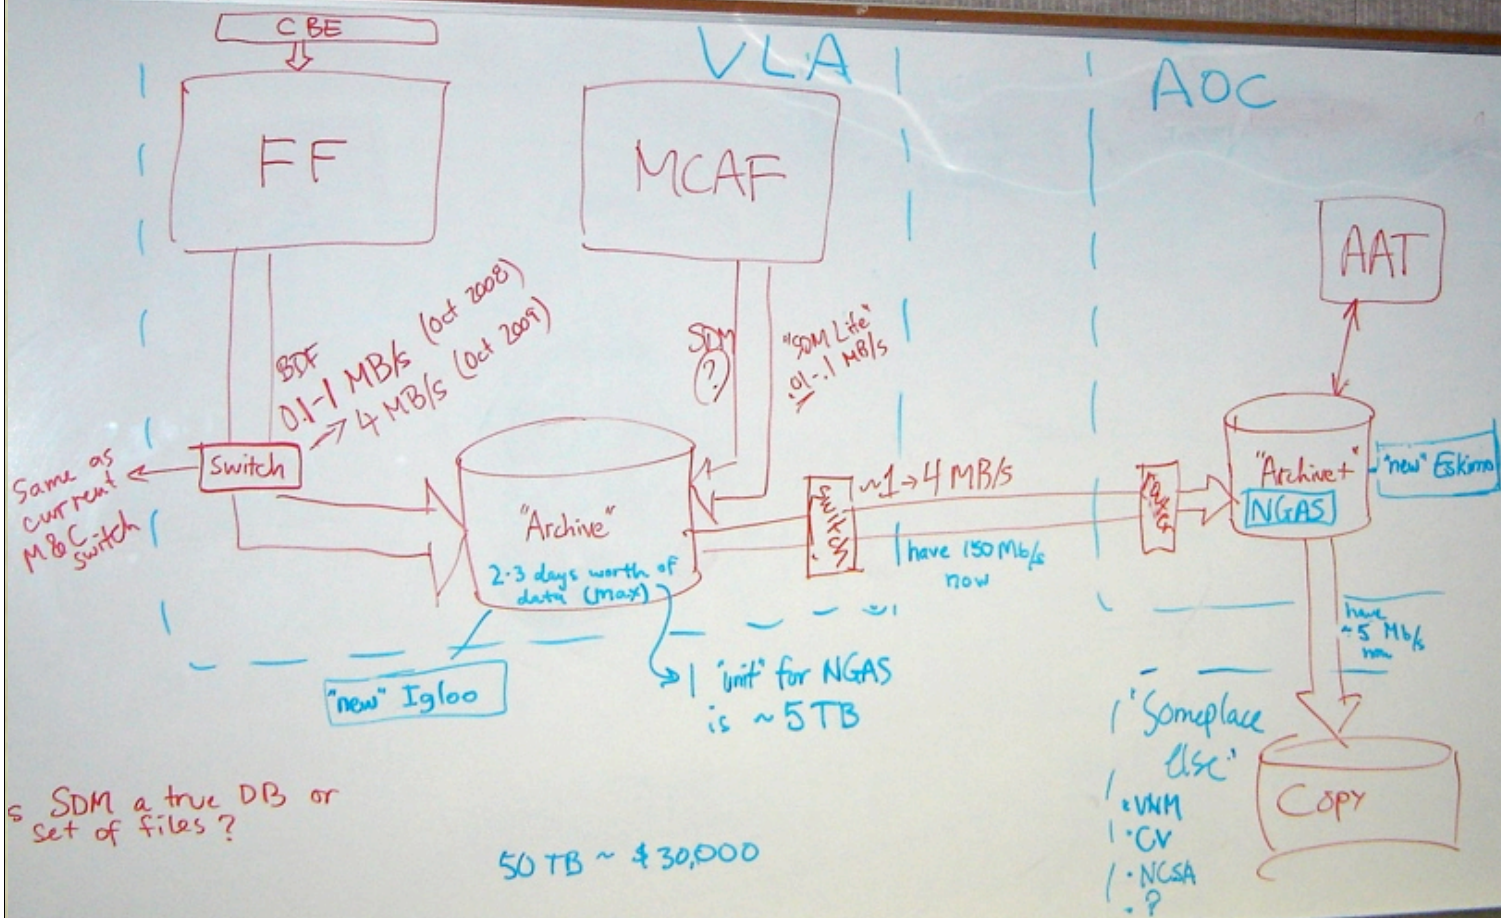 CBE
VLA
AOC
FF
MCAF
AAT
BDF
0.1-1 MB/s (Oct 2008)
→ 4 MB/s (Oct 2009)
SDM
?
"SDM Lite"
.01-.1 MB/s
Switch
Same as
current
M&C
switch
"Archive"
2-3 days worth of
data (max)
switch
~1→4 MB/s
have 150 Mb/s
now
"Archive+"
NGAS
"new" Eskimo
have
~5 Mb/s
now
"new" Igloo
1 "unit" for NGAS
is ~5TB
"Someplace
Else"
• UNM
• CV
• NCSA
• ?
Copy
s SDM a true DB or
set of files?
50 TB ~ $30,000